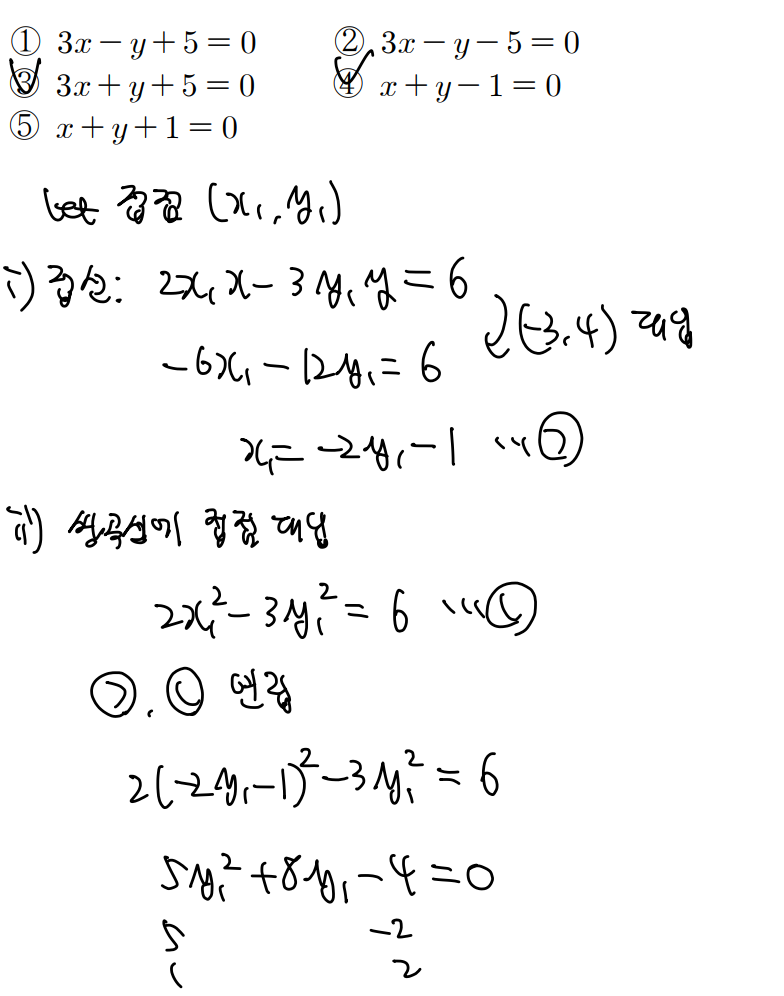 ① 3x − y + 5 = 0 ② 3x − y − 5 = 0
③ 3x + y + 5 = 0 ④ x + y − 1 = 0
⑤ x + y + 1 = 0
let 접점 (x₁, y₁)
i) 접선: 2x₁x − 3y₁y = 6
(−3, 4) 대입
−6x₁ − 12y₁ = 6
x₁ = −2y₁ − 1 ⋯㉠
ii) 쌍곡선에 접점 대입
2x₁² − 3y₁² = 6 ⋯㉡
㉠, ㉡ 연립
2(−2y₁ − 1)² − 3y₁² = 6
5y₁² + 8y₁ − 4 = 0
5 −2
1 2